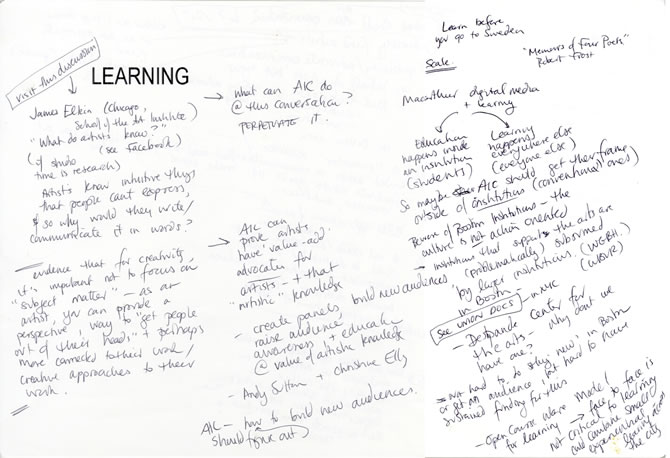 visit this discussion
LEARNING
James Elkin (Chicago,
School of the Art Institute)
"What do artists know?"
(see facebook)
(if studio
time is research)
Artists know intuitive things
that people can't express,
& so why would they write/
communicate it in words?
evidence that for creativity,
it's important not to focus on
"subject matter" — as an
artist, you can provide a
perspective, way to "get people
out of their heads" + perhaps
more connected to their work/
creative approaches to their
work.
→ what can AIC do
@ this conversation?
PERPETUATE it.
→ AIC can
prove artists
have value-add
advocates for
artists - + that
"artistic" knowledge
- create panels, build new audiences
raise audience,
awareness + education
@ value of artistic knowledge
- Andy + Christine
AIC — how to build new audiences.
should figure out
Learn before
you go to Sweden
Scale.
"Memoirs of Four Poets"
Robert Frost
Macarthur digital media
+ learning
Education
happens inside
an institution
(students)
Learning
happens
everywhere else
(everyone else)
So maybe AIC should get their frame
outside of institutions (conventional ones)
Review of Boston Institutions — the
culture is not action oriented
- institutions that support the arts are
(problematically) subsumed
by larger institutions. (WGBH.
in Boston — in NYC (WBUR)
SEE UNION DOCS
- Center for
the arts — why don't we
have one?
- not hard to do "things new" in Boston
or get an audience, but hard to have
sustained funding for this
- Open Course Ware Model
for learning → face to face is
not critical to learning
could combine small
experimental
learning around
the city